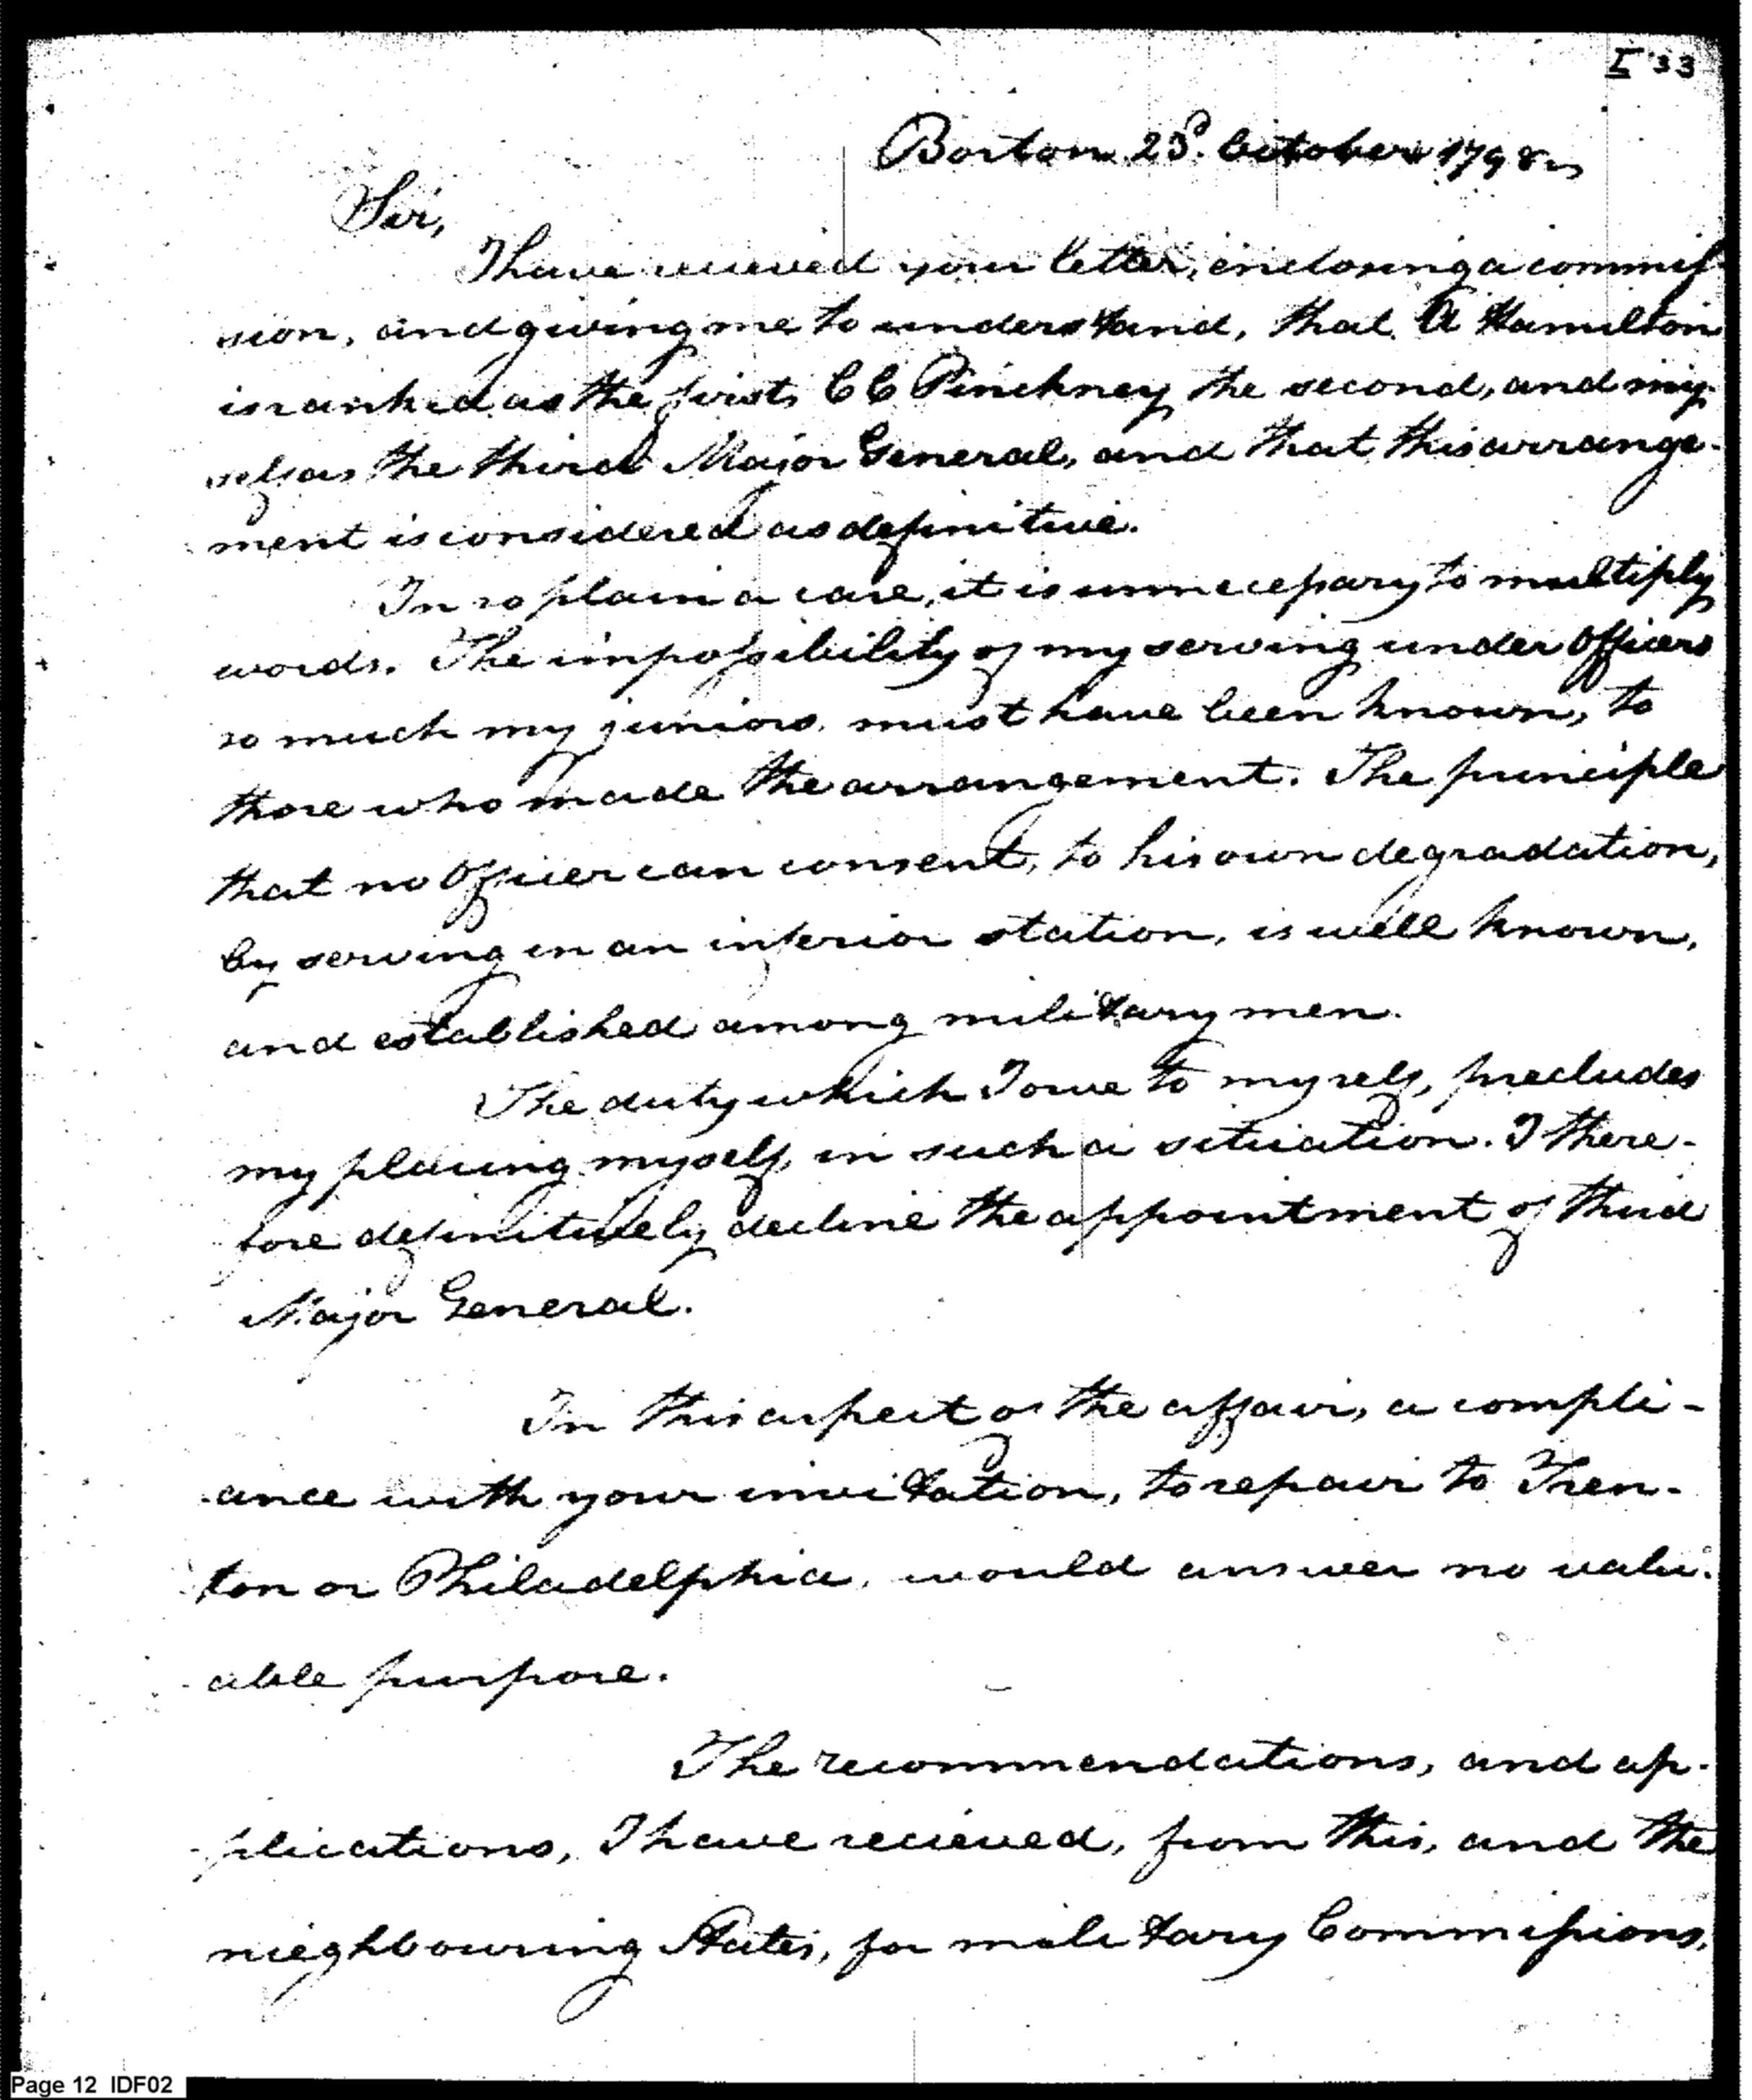 I 33
Boston 23d. October 1798
Sir,
I have recieved your letter, enclosing a commis
sion, and giving me to understand, that A Hamilton
is ranked as the first, CC Pinckney the second, and my
self as the third Major General, and that this arrange-
ment is considered as definitive.
In so plain a case, it is unnecessary to multiply
words. The impossibility of my serving under Officers
so much my juniors must have been known, to
those who made the arrangement. The principle
that no Officer can consent, to his own degradation,
by serving in an inferior station, is well known,
and established among military men.
The duty which I owe to myself, precludes
my placing myself, in such a situation. I there-
fore definitively decline the appointment of third
Major General.
In this aspect of the affair, a compli-
ance with your invitation, to repair to Tren-
ton or Philadelphia, would answer no valu-
able purpose.
The recommendations, and ap-
plications, I have recieved, from this, and the
nieghbouring States, for military Commissions,
Page 12 IDF02